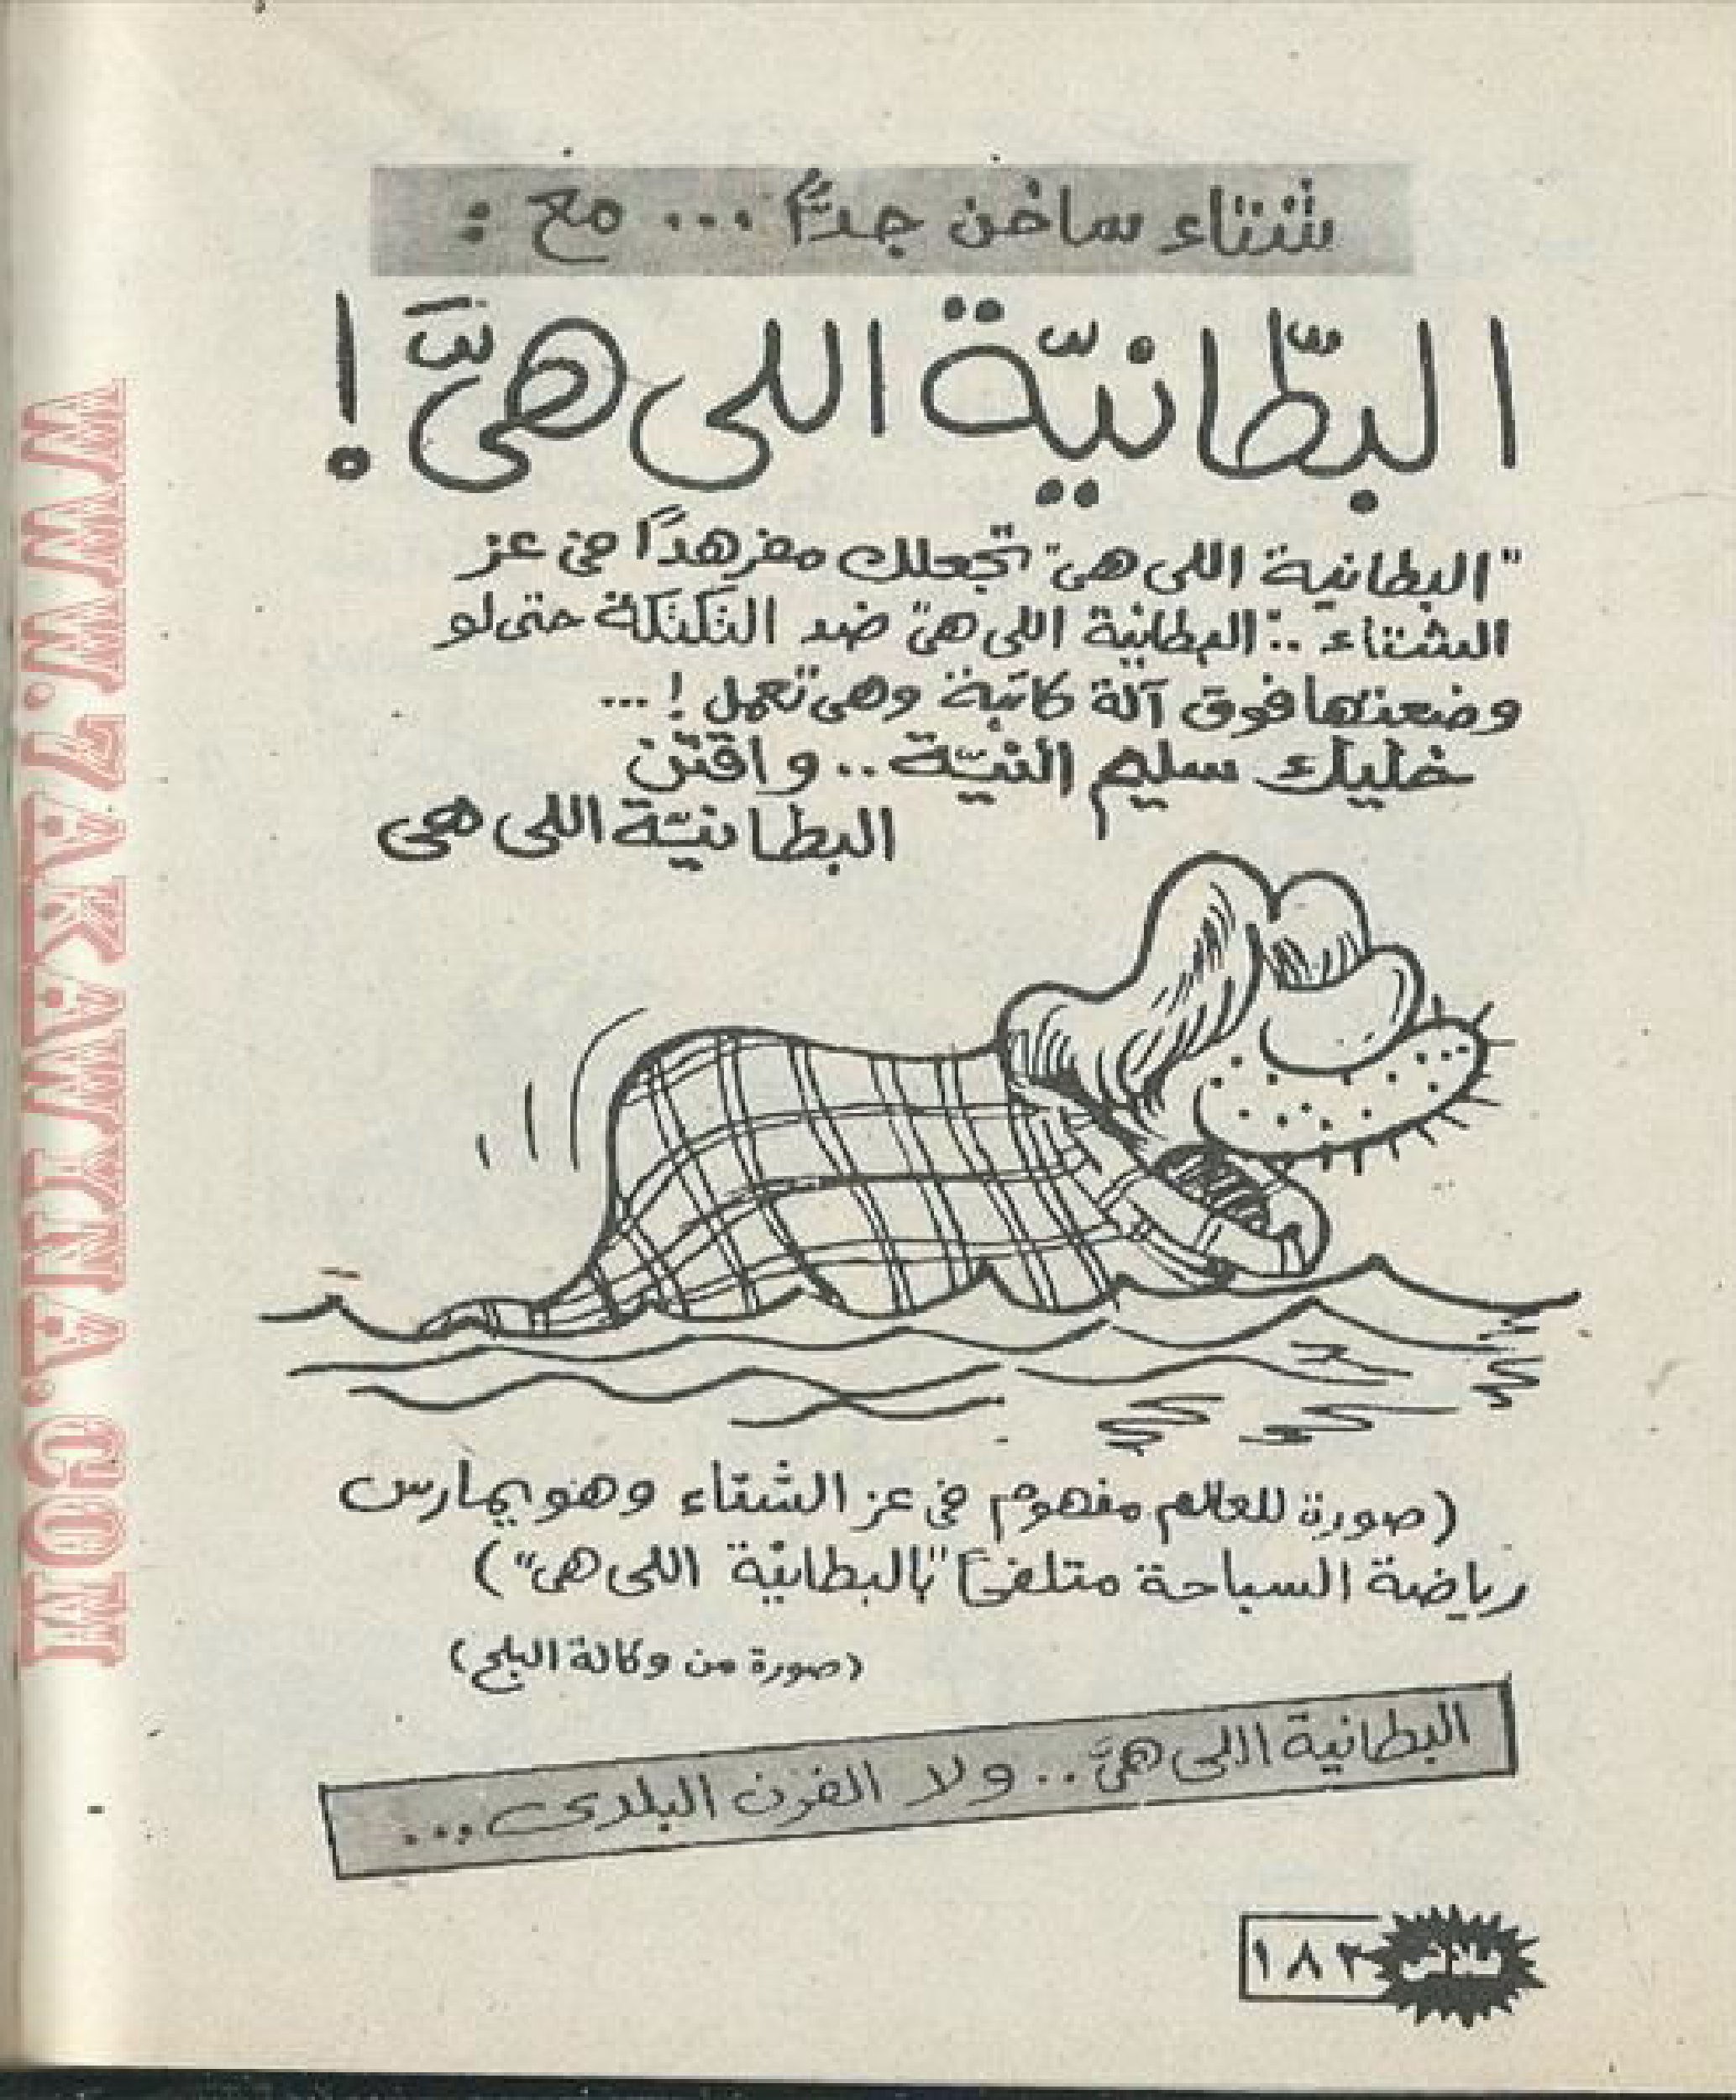 شتاء ساخن جدًّا ... مع :
البطّانيّة اللى هىَّ !
"البطانية اللى هى" تجعلك مفرهدًا فى عز
الشتاء .. "البطانية اللى هى" ضد التكتكة حتى لو
وضعتها فوق آلة كاتبة وهى تعمل ! ...
خليك سليم النيّة .. واقتن
البطانيّة اللى هى
(صورة للعالم مفهوم فى عز الشتاء وهو يمارس
رياضة السباحة متلفحًا "بالبطانية اللى هى")
(صورة من وكالة البلح)
البطانية اللى هىَّ .. ولا الفرن البلدى ...
فلاش
١٨٢
WWW.7AKAWITNA.COM